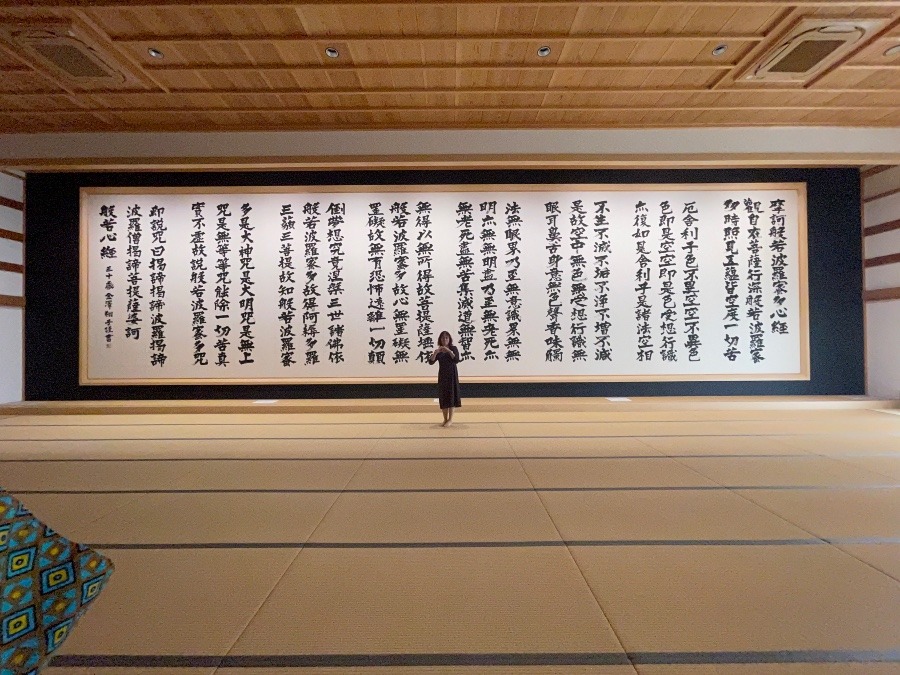 摩訶般若波羅蜜多心經
觀自在菩薩行深般若波羅蜜
多時照見五蘊皆空度一切苦
厄舎利子色不異空空不異色
色即是空空即是色受想行識
亦復如是舎利子是諸法空相
不生不滅不垢不浄不増不減
是故空中無色無受想行識無
眼耳鼻舌身意無色聲香味觸
法無眼界乃至無意識界無無
明亦無無明盡乃至無老死亦
無老死盡無苦集滅道無智亦
無得以無所得故菩提薩埵依
般若波羅蜜多故心無罣礙無
罣礙故無有恐怖遠離一切顛
倒夢想究竟涅槃三世諸佛依
般若波羅蜜多故得阿耨多羅
三藐三菩提故知般若波羅蜜
多是大神咒是大明咒是無上
咒是無等等咒能除一切苦真
實不虚故説般若波羅蜜多咒
即説咒曰揭諦揭諦波羅揭諦
波羅僧揭諦菩提薩婆訶
般若心經 三十歳 金澤翔子謹書